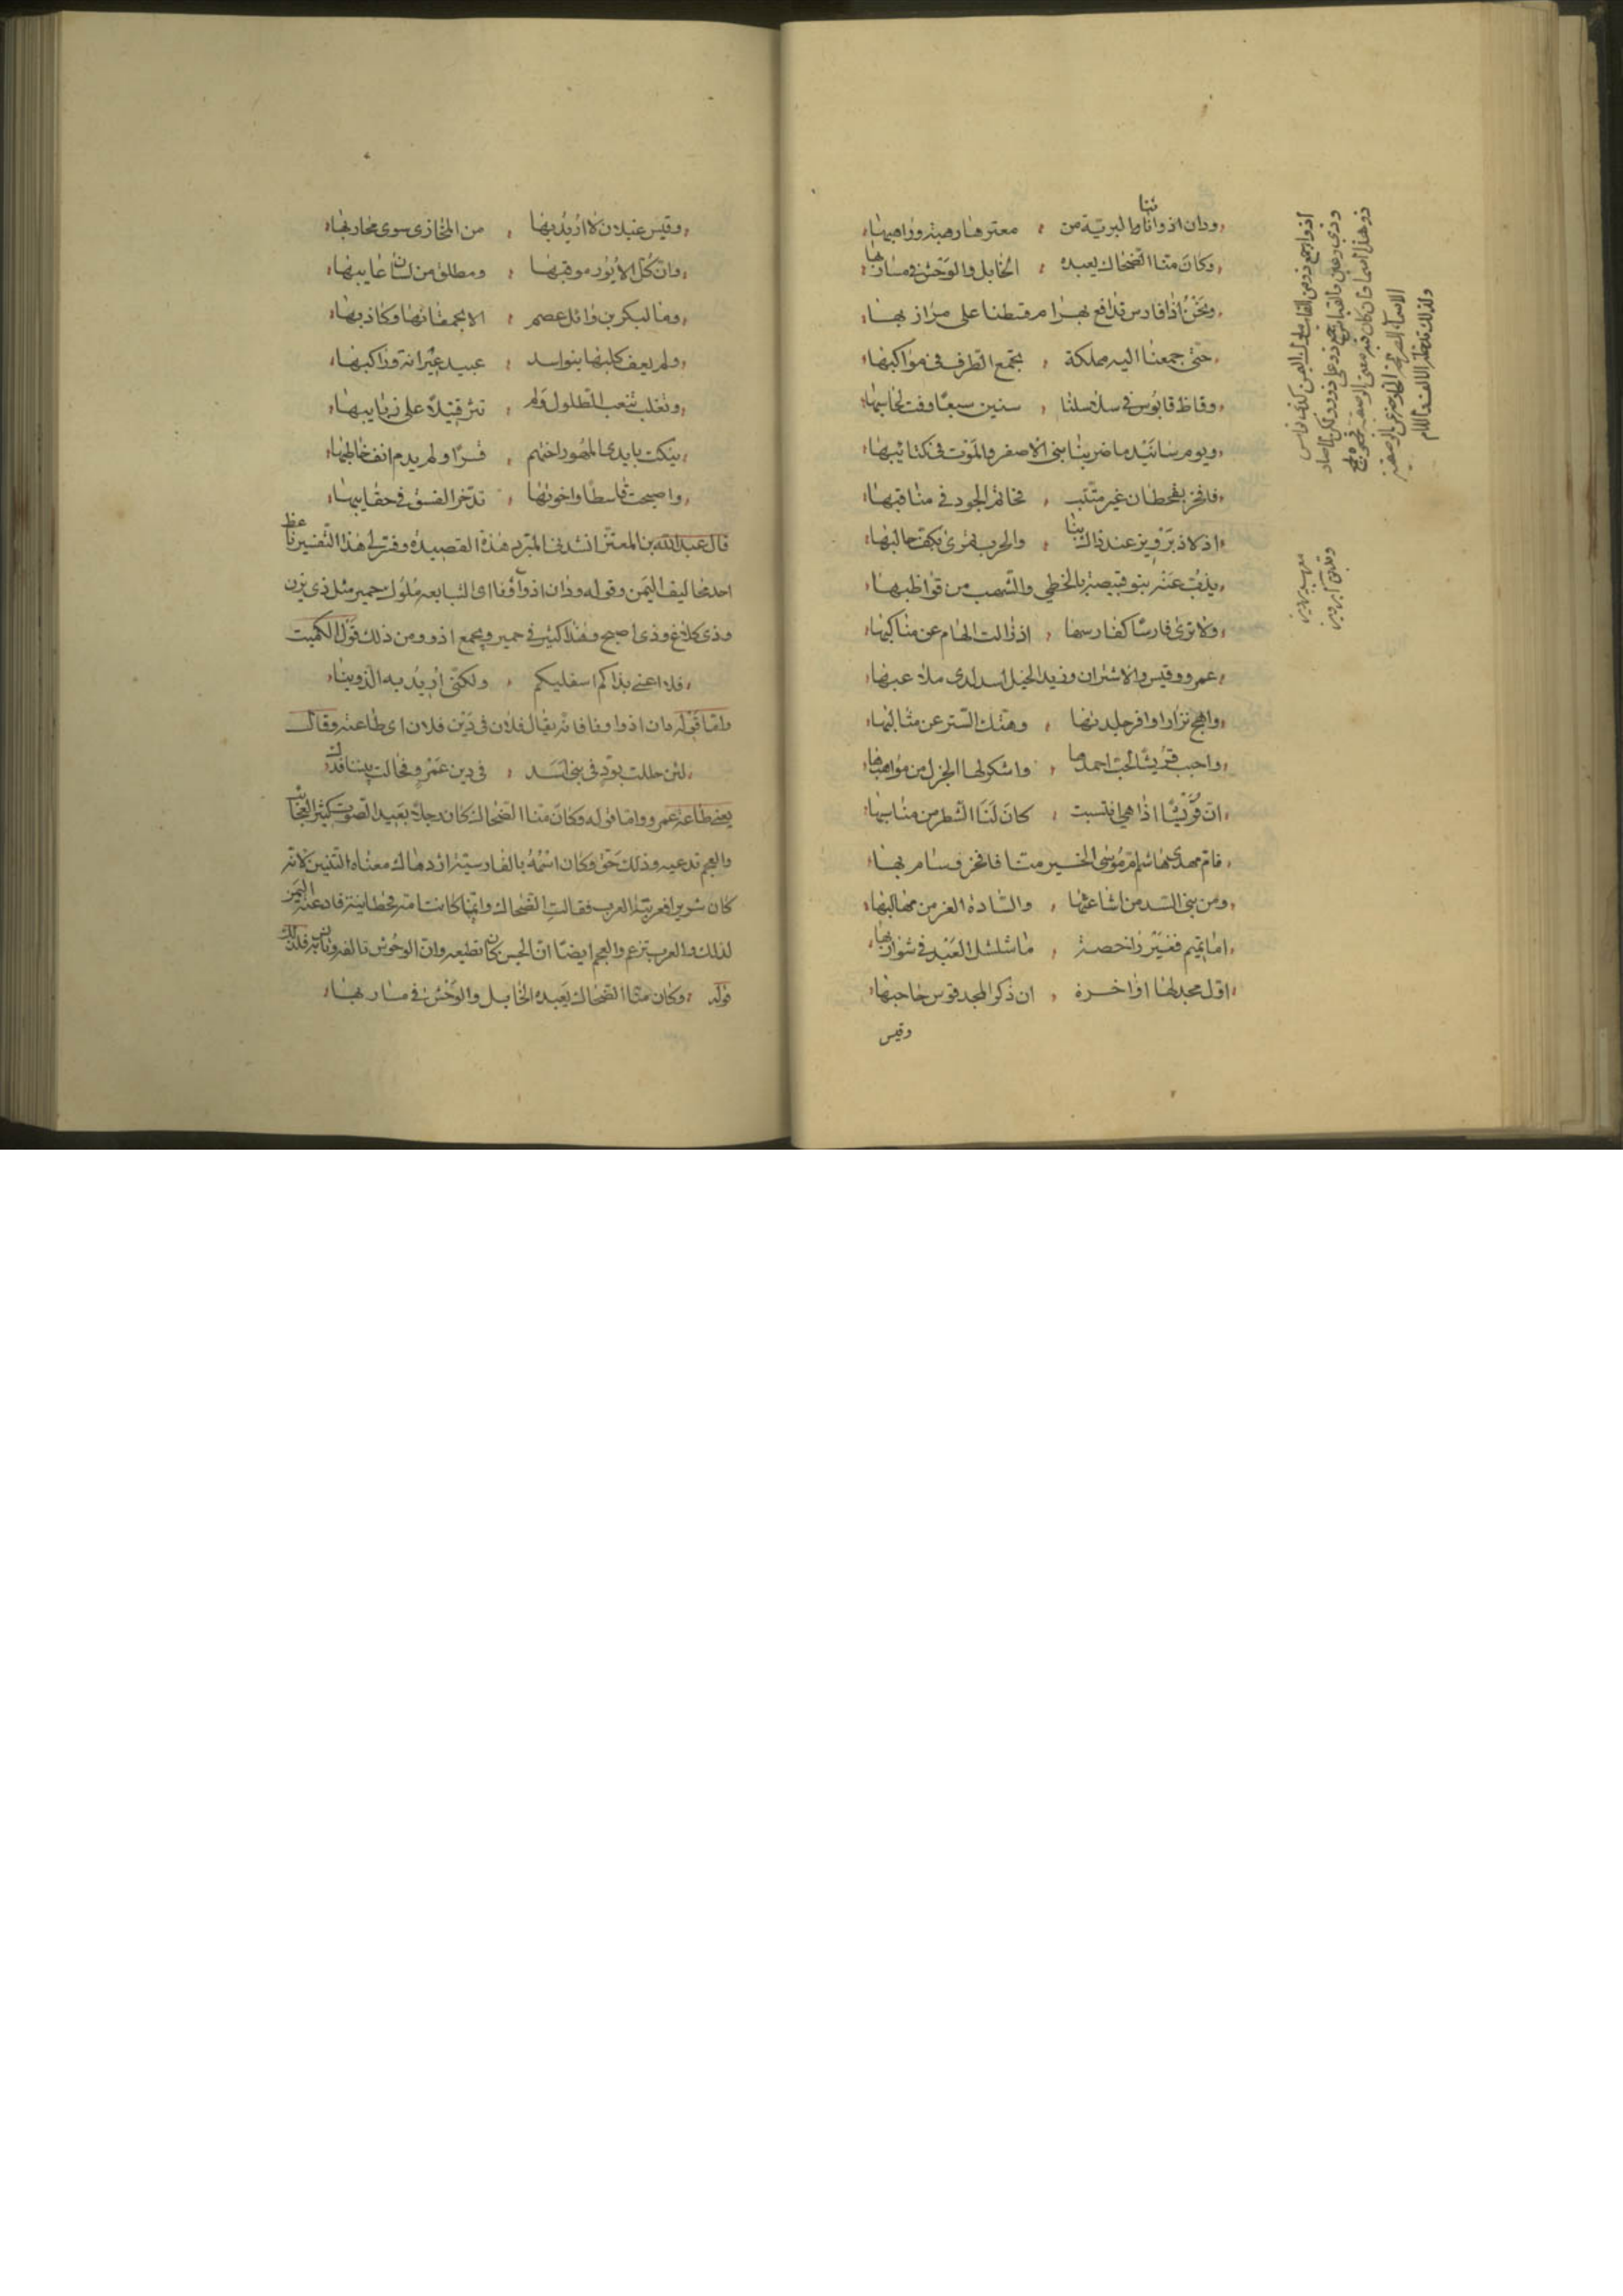 ودان اذواؤنا البرية من معترها رهبة وراهبها
وكان منا الضحاك يعبده الخابل والوحش في مساربها
ونحن اذ فارس تدافع بهرام قسطنا على مرازبها
حتى جمعنا اليه مملكة تجمع الطرف في مواكبها
وقاظ قابوس في سلاسلنا سنين سبعا وفت لحاسبها
ويوم ساتيدما ضربنا بني الاصفر والموت في كتائبها
فافخر بقحطان غير متئب فحاتم الجود في مناقبها
اذ لاذ برويز عند ذاك بنا والحرب تمرى بكف حالبها
يذب عنه بنو قبيصة بالخطي والشهب من قواظبها
ولا ترى فارسا كفارسها اذ زالت الهام عن مناكبها
عمرو وقيس والاشتران وزيد الخيل اسد لدى ملاعبها
واهج نزارا وافر جلدتها وهتك الستر عن مثالبها
واحبب قريشا لحب احمدها واشكر لها الجزل من مواهبها
ان قريشا اذا هي انتسبت كان لنا الشطر من مناسبها
فام مهدي هاشم ام موسى الخير منا فافخر وسام بها
اما تميم فغير راحضة ما شلشل العبد في شواربها
اول مجد لها واخره ان ذكر المجد قوس حاجبها
وقيس
وقيس عيلان لا اريد بها من المخازي سوى محاربها
وان كل الايور موقبها ومطلق من لسان عايبها
وما لبكر بن وائل عصم الا بحمقائها وكاذبها
ولم يعف كلبها بنو اسد عبيد عيرانة وراكبها
وتغلب تنعب الطلول ولم تثر قتيلا على ذبايبها
نيكت بايدي المهور اختهم قسرا ولم يدم انف خاطبها
واصبحت قاسطا واخوتها تدخر الفسو في حقايبها
قال عبد الله بن المعتز انشدنا المبرد هذه القصيدة وفسر لي هذا التفسير
احد مخاليف اليمن وقوله ودان اذواؤنا اي التبابعة ملوك حمير مثل ذي يزن
وذي كلاع وذي اصبح وهذا كثير في حمير ويجمع اذوو ومن ذلك قول الكميت
فلا اعني بذاكم اسفليكم ولكني اريد به الذوينا
واما قوله دان اذواؤنا فانه يقال فلان في دين فلان اي طاعته وقال
لئن حللت بودي في بني اسد في دين عمرو وحالت بيننا فدك
يعني طاعة عمرو واما قوله وكان منا الضحاك كان رجلا بعيد الصوت كثير
والعجم تدعيه وذلك حق وكان اسمه بالفارسية ازدهاك معناه التنين لانه
كان شريرا فعربته العرب فقالت الضحاك وانما كانت امه قحطانية فادعته اليمن
لذلك والعرب تزعم والعجم ايضا ان الجن كان تطيعه وان الوحوش تالفه وتانس به فلذلك
قوله وكان منا الضحاك يعبده الخابل والوحش في مساربها